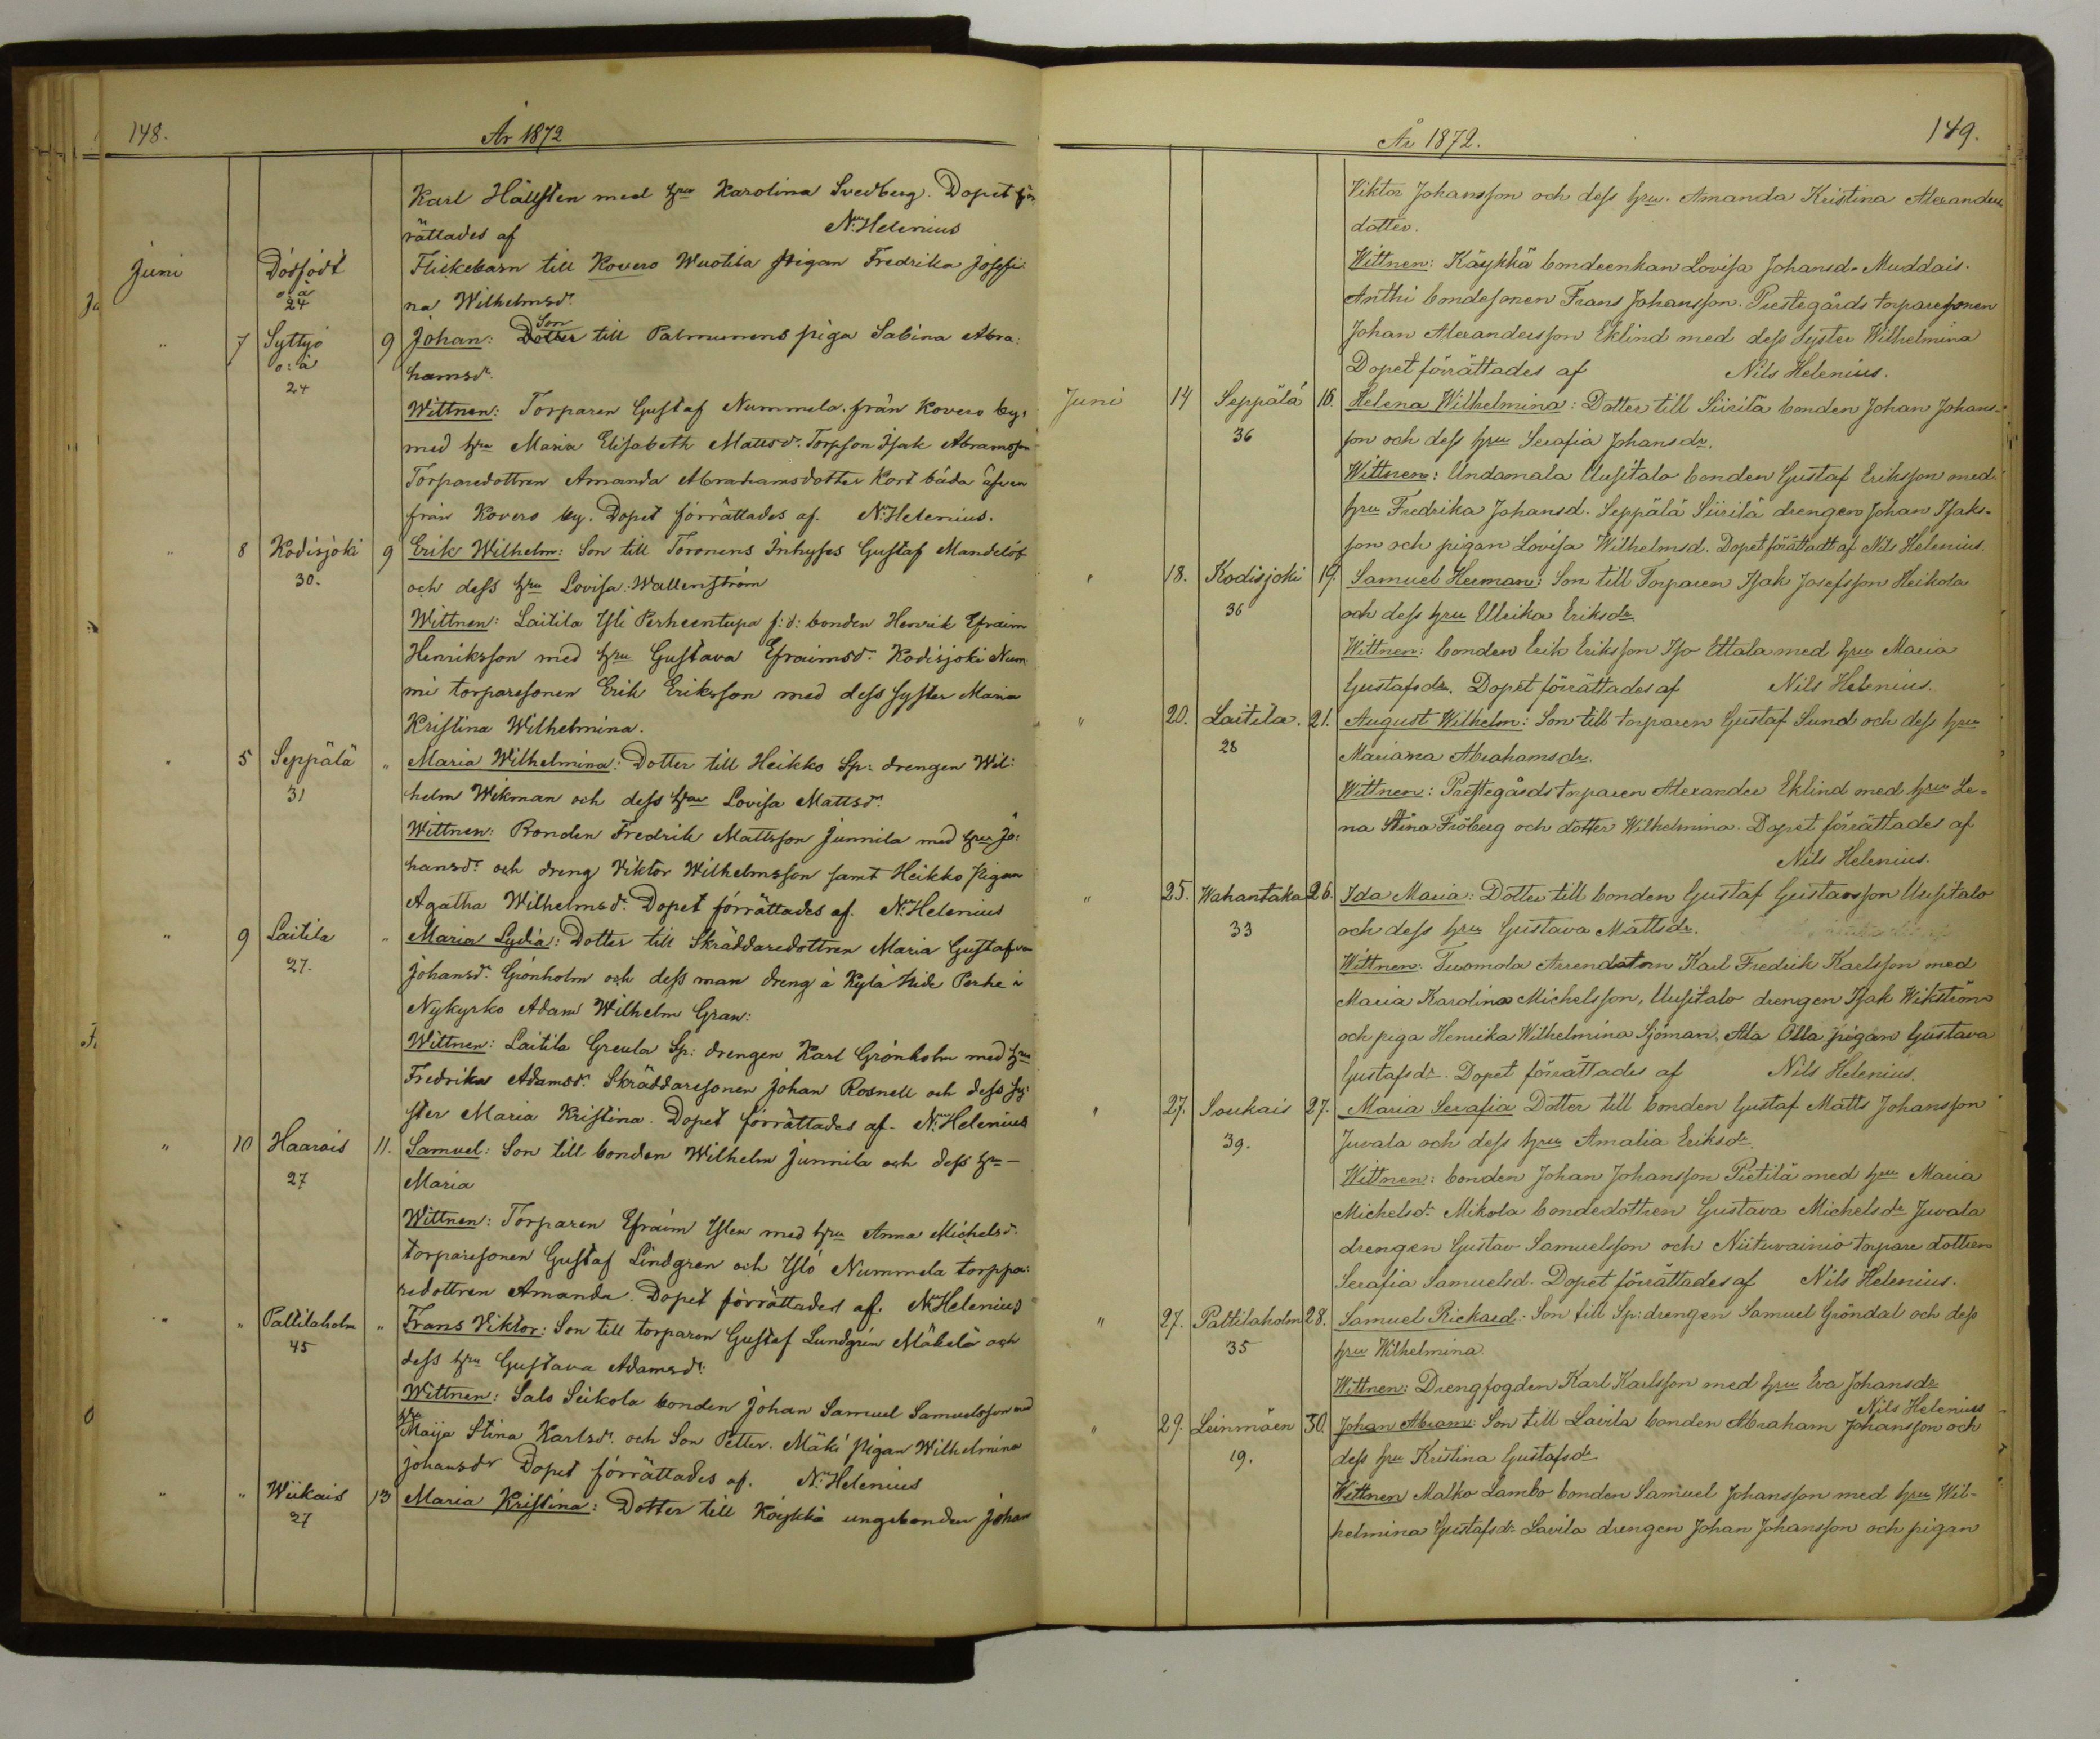 148.
År 1872
Karl Hällsten med hru Karolina Svedberg. Dopet för
rättades af N. Helenius
Juni Dödfödt Flickebarn till Kovero Wuotila pigan Fredrika Josefi
o: ä 24 na Wilhelmsdr.
" 7 Syttyö 9 Johan: Dotter Son till Palmunens piga Sabina Abra:
o: ä hamsdr.
24 Wittnen: Torparen Gustaf Nummela, från Kovero by,
med hru Maria Elisabeth Mattsdr. Torpson Isak Abramsson
Torparedottren Amanda Abrahamsdotter Kort båda äfven
från Kovero by. Dopet förrättades af. N. Helenius.
" 8 Kodisjoki 9 Erik Wilhelm: Son till Toronens Inhyses Gustaf Mandelöf
30. och dess hru Lovisa Wallenström
Wittnen: Laitila Yli Perheentupa f: d: bonden Henrik Efraim
Henriksson med hru Gustava Efraimsdr. Kodisjoki Num
mi torparesonen Erik Eriksson med dess syster Maria
Kristina Wilhelmina.
" 5 Seppälä " Maria Wilhelmina: Dotter till Heikko Sp: drengen Wil:
31 helm Wikman och dess hru Lovisa Mattsdr.
Wittnen: Bonden Fredrik Mattsson Junnila med hru Jo:
hansdr. och dreng Viktor Wilhelmsson samt Heikko Pigan
Agatha Wilhelmsdr. Dopet förrättades af. N. Helenius
" 9 Laitila " Maria Lydia: Dotter till Skräddaredottren Maria Gustafva
27. Johansdr. Grönholm och dess man dreng å Kylä Hide Perhe i
Nykyrko Adam Wilhelm Gran:
Wittnen: Laitila Greula Sp: drengen Karl Grönholm med hru
Fredrika Adamsdr. Skräddaresonen Johan Rosnell och dess sy
ster Maria Kristina. Dopet förrättades af. N. Helenius
" 10 Haarois 11. Samuel: Son till bonden Wilhelm Junnila och dess hru
27 Maria
Wittnen: Torparen Efraim Ylen med hru Anna Michelsdr.
torparesonen Gustaf Lindgren och Ylö Nummela torppa:
redottren Amanda. Dopet förrättades af. N. Helenius
" " Pattilaholm " Frans Viktor: Son till torparen Gustaf Lundgrén Mäkelä och
45 dess hru Gustava Adamsdr.
Wittnen: Salo Seikola bonden Johan Samuel Samuelsson med
hru Maija Stina Karlsdr. och Son Petter. Mäki Pigan Wilhelmina
Johansdr Dopet förrättades af. N. Helenius
" " Wiikais 13 Maria Kristina: Dotter till Käykkä ungebonden Johan
27
149.
År 1872.
Viktor Johansson och dess hru. Amanda Kristina Alexanders
dotter.
Wittnen: Käykkä bondeenkan Lovisa Johansd. Muddais.
Anthi bondesonen Frans Johansson. Prestegårds torparesonen
Johan Alexandersson Eklind med dess syster Wilhelmina
Dopet förrättades af Nils Helenius.
Juni 14 Seppälä 16. Helena Wilhelmina: Dotter till Siirilä bonden Johan Johans-
36 son och dess hru Serafia Johansdr.
Wittnen: Undamala Uusitalo bonden Gustaf Eriksson med
hru Fredrika Johansd. Seppälä Siirilä drengen Johan Isaks-
son och pigan Lovisa Wilhelmsd. Dopet förättadt af Nils Helenius.
" 18. Kodisjoki 19. Samuel Herman: Son till Torparen Isak Josefsson Heikola
36 och dess hru Ulrika Eriksdr.
Wittnen: bonden Erik Eriksson Iso Ettala med hru Maria
Gustafsdr. Dopet förrättades af Nils Helenius.
" 20. Laitila. 21. August Wilhelm: Son till torparen Gustaf Sund och dess hru
28 Mariana Abrahamsdr.
Wittnen: Prestegårds torparen Alexander Eklind med hru Le-
na Stina Fröberg och dotter Wilhelmina. Dopet förrättades af
Nils Helenius.
" 25. Wahantaka 26. Ida Maria: Dotter till bonden Gustaf Gustavsson Uusitalo
33 och dess hru Gustava Mattsdr.
Wittnen: Tuomola Arrendatorn Karl Fredrik Karlsson med
Maria Karolina Michelsson, Uusitalo drengen Isak Wikström
och piga Henrika Wilhelmina Sjöman, Ala Olla pigan Gustava
Gustafsdr. Dopet förrättades af Nils Helenius.
" 27. Soukais 27. Maria Serafia Dotter till bonden Gustaf Matts Johansson
39. Juvala och dess hru Amalia Eriksdr.
Wittnen: bonden Johan Johansson Pietilä med hru Maria
Michelsdr. Mikola bondedottren Gustava Michelsdr Juvala
drengen Gustav Samuelsson och Niituvainio torpare dottren
Serafia Samuelsd. Dopet förrättades af Nils Helenius.
" 27. Pattilaholm 28. Samuel Rickard: Son till Sp: drengen Samuel Gröndal och dess
35 hru Wilhelmina
Wittnen: Drengfogden Karl Karlsson med hru Eva Johansdr
Nils Helenius
" 29. Leinmäen 30. Johan Abram: Son till Lavila bonden Abraham Johansson och
19. dess hru Kristina Gustafsdr
Wittnen Malko Lambo bonden Samuel Johansson med hru Wil-
helmina Gustafsdr. Lavila drengen Johan Johansson och pigan